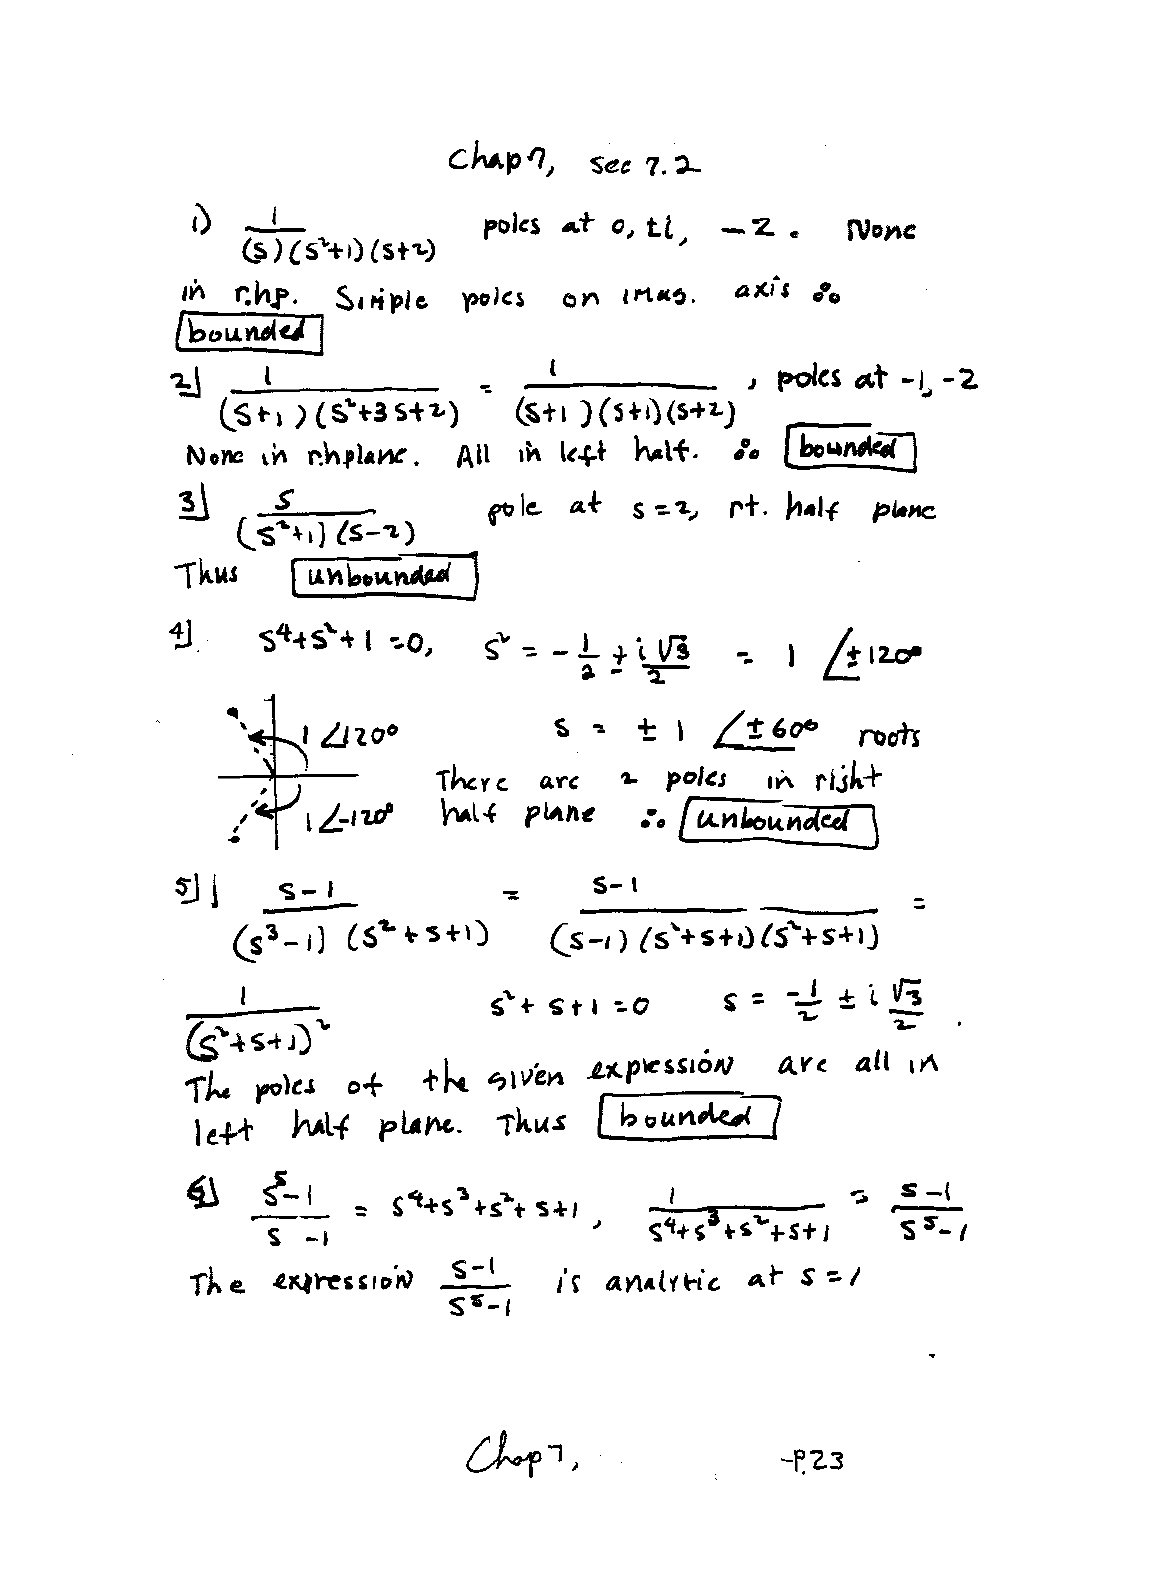 Chap 7, sec 7.2
1) 1/((s)(s²+1)(s+2)) poles at 0, ±i, -2. None
in r.hp. Simple poles on imag. axis ∴
bounded
2] 1/((s+1)(s²+3s+2)) = 1/((s+1)(s+1)(s+2)), poles at -1, -2
None in r.hplane. All in left half. ∴ bounded
3] s/((s²+1)(s-2)) pole at s=2, rt. half plane
Thus unbounded
4]. s⁴+s²+1=0, s² = -1/2 ± i√3/2 = 1 ∠±120°
1∠120° s = ±1 ∠±60° roots
There are 2 poles in right
1∠-120° half plane ∴ unbounded
5] (s-1)/((s³-1)(s²+s+1)) = (s-1)/((s-1)(s²+s+1)(s²+s+1)) =
1/(s²+s+1)² s²+s+1=0 s = -1/2 ± i√3/2.
The poles of the given expression are all in
left half plane. Thus bounded
6] (s⁵-1)/(s-1) = s⁴+s³+s²+s+1, 1/(s⁴+s³+s²+s+1) = (s-1)/(s⁵-1)
The expression (s-1)/(s⁵-1) is analytic at s=1
Chap 7, -P.23